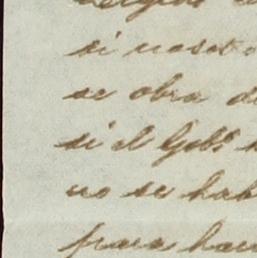 si nosot
se obra d
si el Gobº
no se hab
para hac